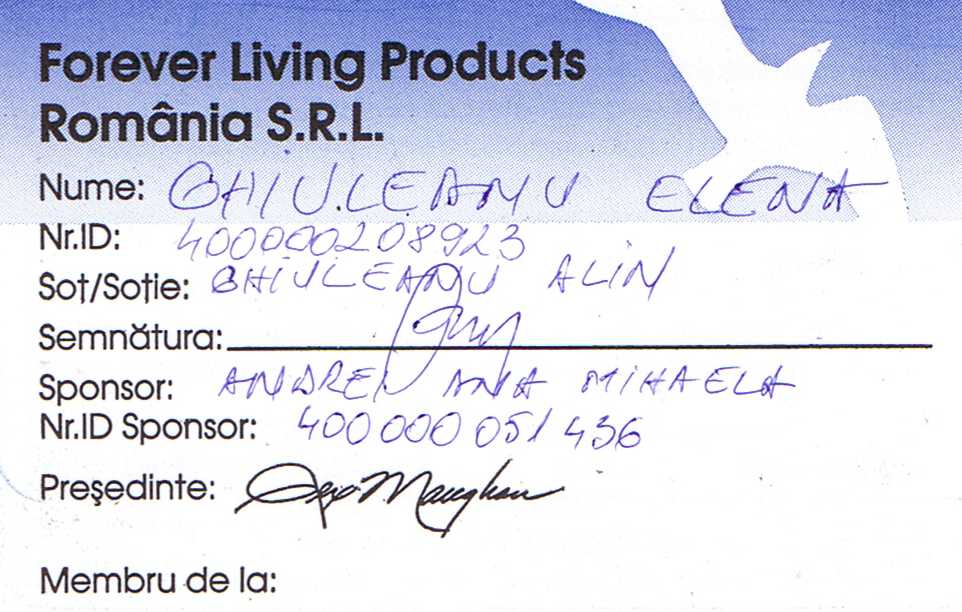 Forever Living Products
România S.R.L.
Nume: GHIULEANU ELENA
Nr.ID: 400000208923
Soț/Soție: GHIULEANU ALIN
Semnătura:
Sponsor: ANDREI ANA MIHAELA
Nr.ID Sponsor: 400000051436
Președinte: Rex Maughan
Membru de la: